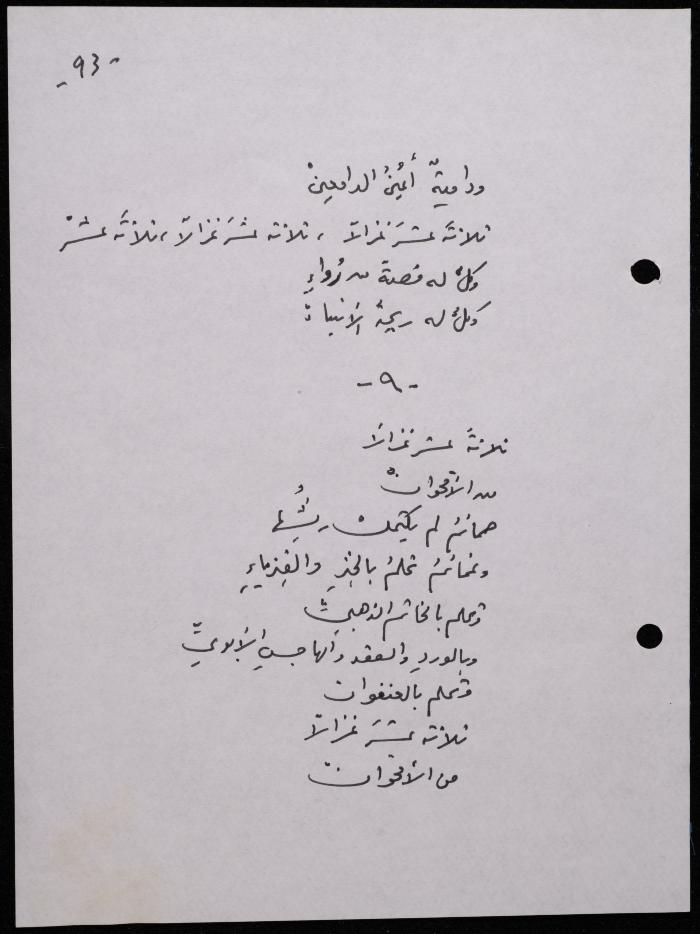 -٩٣-
وداميةٌ أعينُ الدامعينْ
ثلاثةَ عشرَ غزالاً ، ثلاثة عشرَ غزالاً ، ثلاثةَ عشرْ
وكلٌ له قصةٌ من رُواءِ
وكلٌ له ريحةُ الأنبياءْ
-٩-
ثلاثةَ عشر غزالاً
من الأقحوانْ
حمائمُ لم يكتملْ ريشُها
وغمائمُ تحلمُ بالخبزِ والفيزياءِ
وتحلم بالخاتم الذهبيِّ
وبالوردِ والعقد والهاجسِ الأبويِّ
وتحلم بالعنفوان
ثلاثة عشرَ غزالاً
من الأقحوانْ